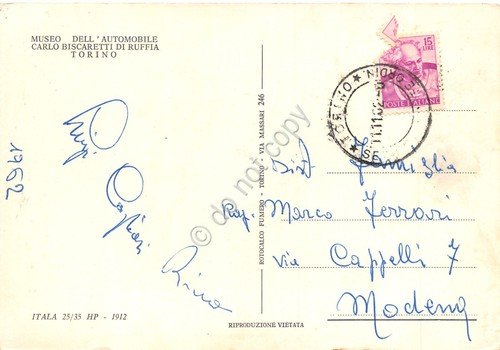 MUSEO DELL'AUTOMOBILE
CARLO BISCARETTI DI RUFFIA
TORINO
1962
Rina
ITALA 25/35 HP - 1912
ROTOCALCO FUMERO - TORINO - VIA MASSARI 246
RIPRODUZIONE VIETATA
do not copy
15
LIRE
POSTE ITALIANE
TORINO
11.11.62
Famiglia
Rag. Marco Ferrari
via Cappelli 7
Modena